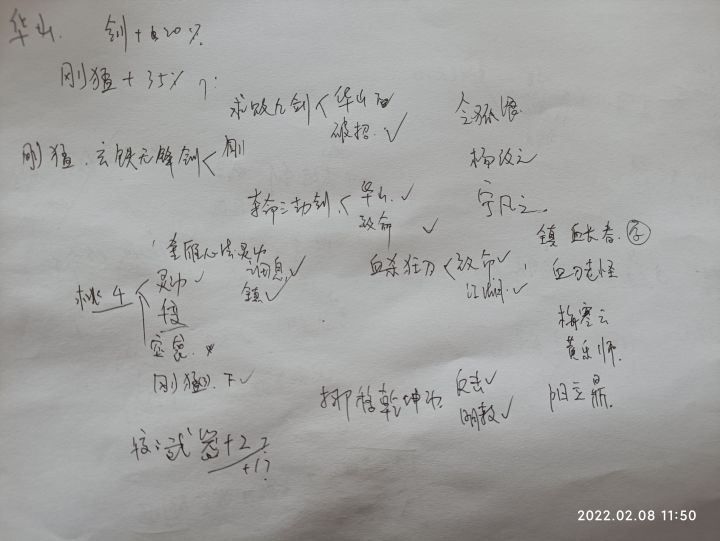 华山. 剑+20%.
刚猛+35%?
求败九剑 < 华山
破招. ✓
令狐
刚猛. 玄铁无锋剑 < 刚
杨改之
夺命三劫剑. < 华山. ✓
致命 ✓
宁凡之.
重雁心法灵巧
调息. ✓
镇 ✓
镇 血长春.
桃4 < 灵巧 ✓
血杀狂刀 < 致命 ✓
江湖. ✓
血刀老怪
梅寒云
黄乐师.
刚猛. 下 ✓
挪移乾坤功 反击 ✓
明教 ✓
阳立鼎.
武器+2?
+1?
2022.02.08 11:50